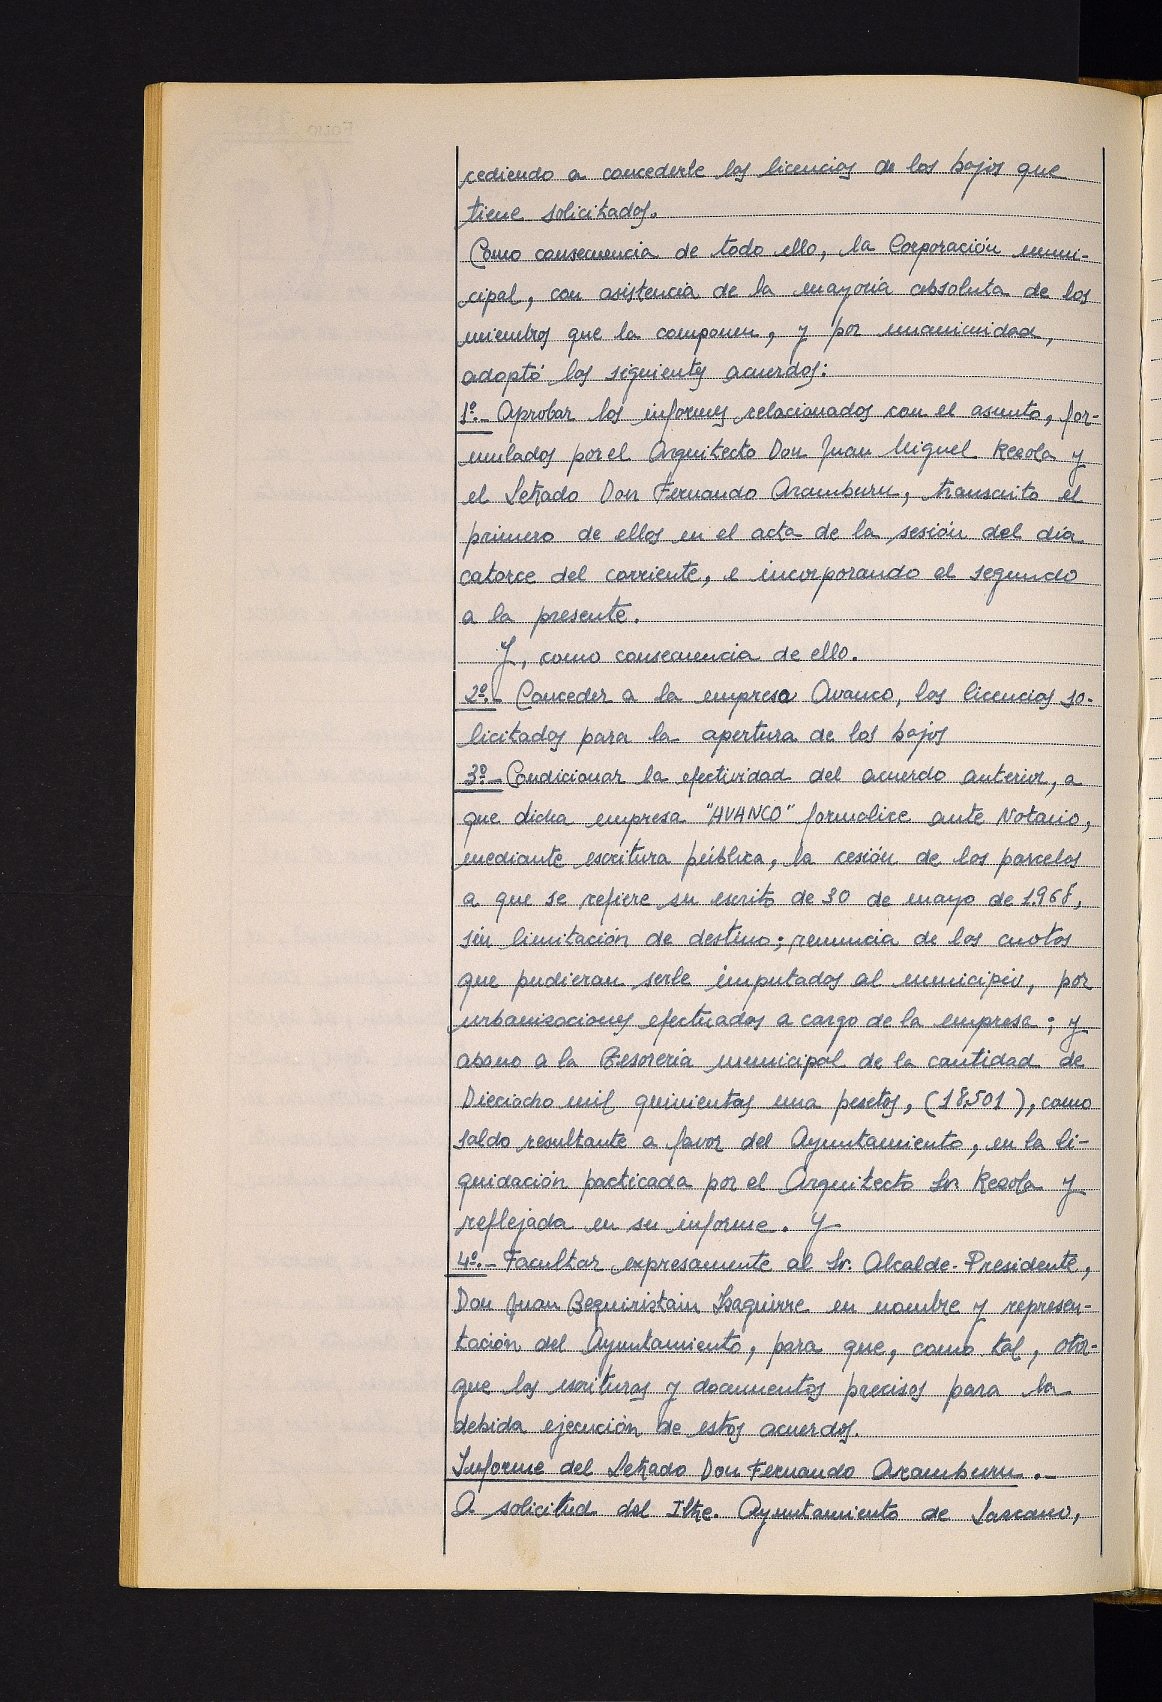 cediendo a concederle las licencias de los bajos que
tiene solicitados.
Como consecuencia de todo ello, la Corporación muni-
cipal, con asistencia de la mayoría absoluta de los
miembros que la componen, y por unanimidad,
adoptó los siguientes acuerdos:
1º.- Aprobar los informes relacionados con el asunto, for-
mulados por el Arquitecto Don Juan Miguel Rezola y
el Letrado Don Fernando Aramburu, transcrito el
primero de ellos en el acta de la sesión del día
catorce del corriente, e incorporando el segundo
a la presente.
Y, como consecuencia de ello.
2º.- Conceder a la empresa Avanco, las licencias so-
licitadas para la apertura de los bajos
3º.- Condicionar la efectividad del acuerdo anterior, a
que dicha empresa "AVANCO" formalice ante Notario,
mediante escritura pública, la cesión de las parcelas
a que se refiere su escrito de 30 de mayo de 1.968,
sin limitación de destino; renuncia de las cuotas
que pudieran serle imputadas al municipio, por
urbanizaciones efectuadas a cargo de la empresa; y
abono a la Tesorería municipal de la cantidad de
Dieciocho mil quinientas una pesetas, (18.501), como
saldo resultante a favor del Ayuntamiento, en la li-
quidación pacticada por el Arquitecto Sr. Rezola y
reflejada en su informe. Y
4º.- Facultar expresamente al Sr. Alcalde-Presidente,
Don Juan Beguiristain Izaguirre en nombre y represen-
tación del Ayuntamiento, para que, como tal, otor-
gue las escrituras y documentos precisos para la
debida ejecución de estos acuerdos.
Informe del Letrado Don Fernando Aramburu.-
A solicitud del Iltre. Ayuntamiento de Lazcano,